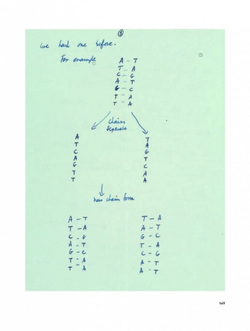 ③
we had one before.
For example
A - T
T - A
C - G
A - T
G - C
T - A
T - A
Chains
Separate
A T
T A
C G
A T
G C
T A
T A
new chains form
A - T T - A
T - A A - T
C - G G - C
A - T T - A
G - C C - G
T - A A - T
T - A A - T